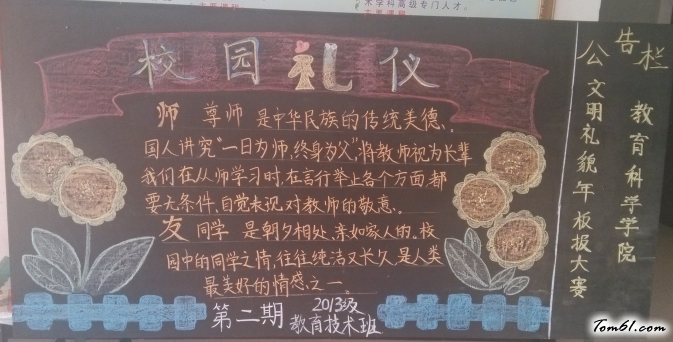 术学科高级专门人才。
校园礼仪
师 尊师 是中华民族的传统美德、。
国人讲究"一日为师,终身为父",将教师视为长辈
我们在从师学习时,在言行举止各个方面都
要无条件,自觉表现对教师的敬意、。
友 同学 是朝夕相处、亲如家人的。校
园中的同学之情,往往纯洁又长久,是人类
最美好的情感之一。
第二期 2013级
教育技术班
公告栏
文明礼貌年板报大赛
教育科学学院
Tom61.com